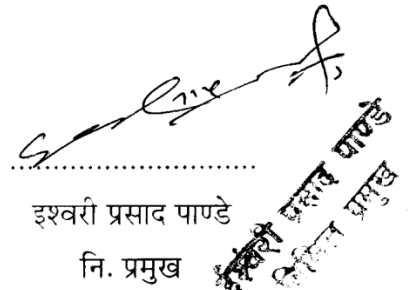 इश्वरी प्रसाद पाण्डे
नि. प्रमुख
ईश्वरी प्रसाद पाण्डे
निमित्त प्रमुख